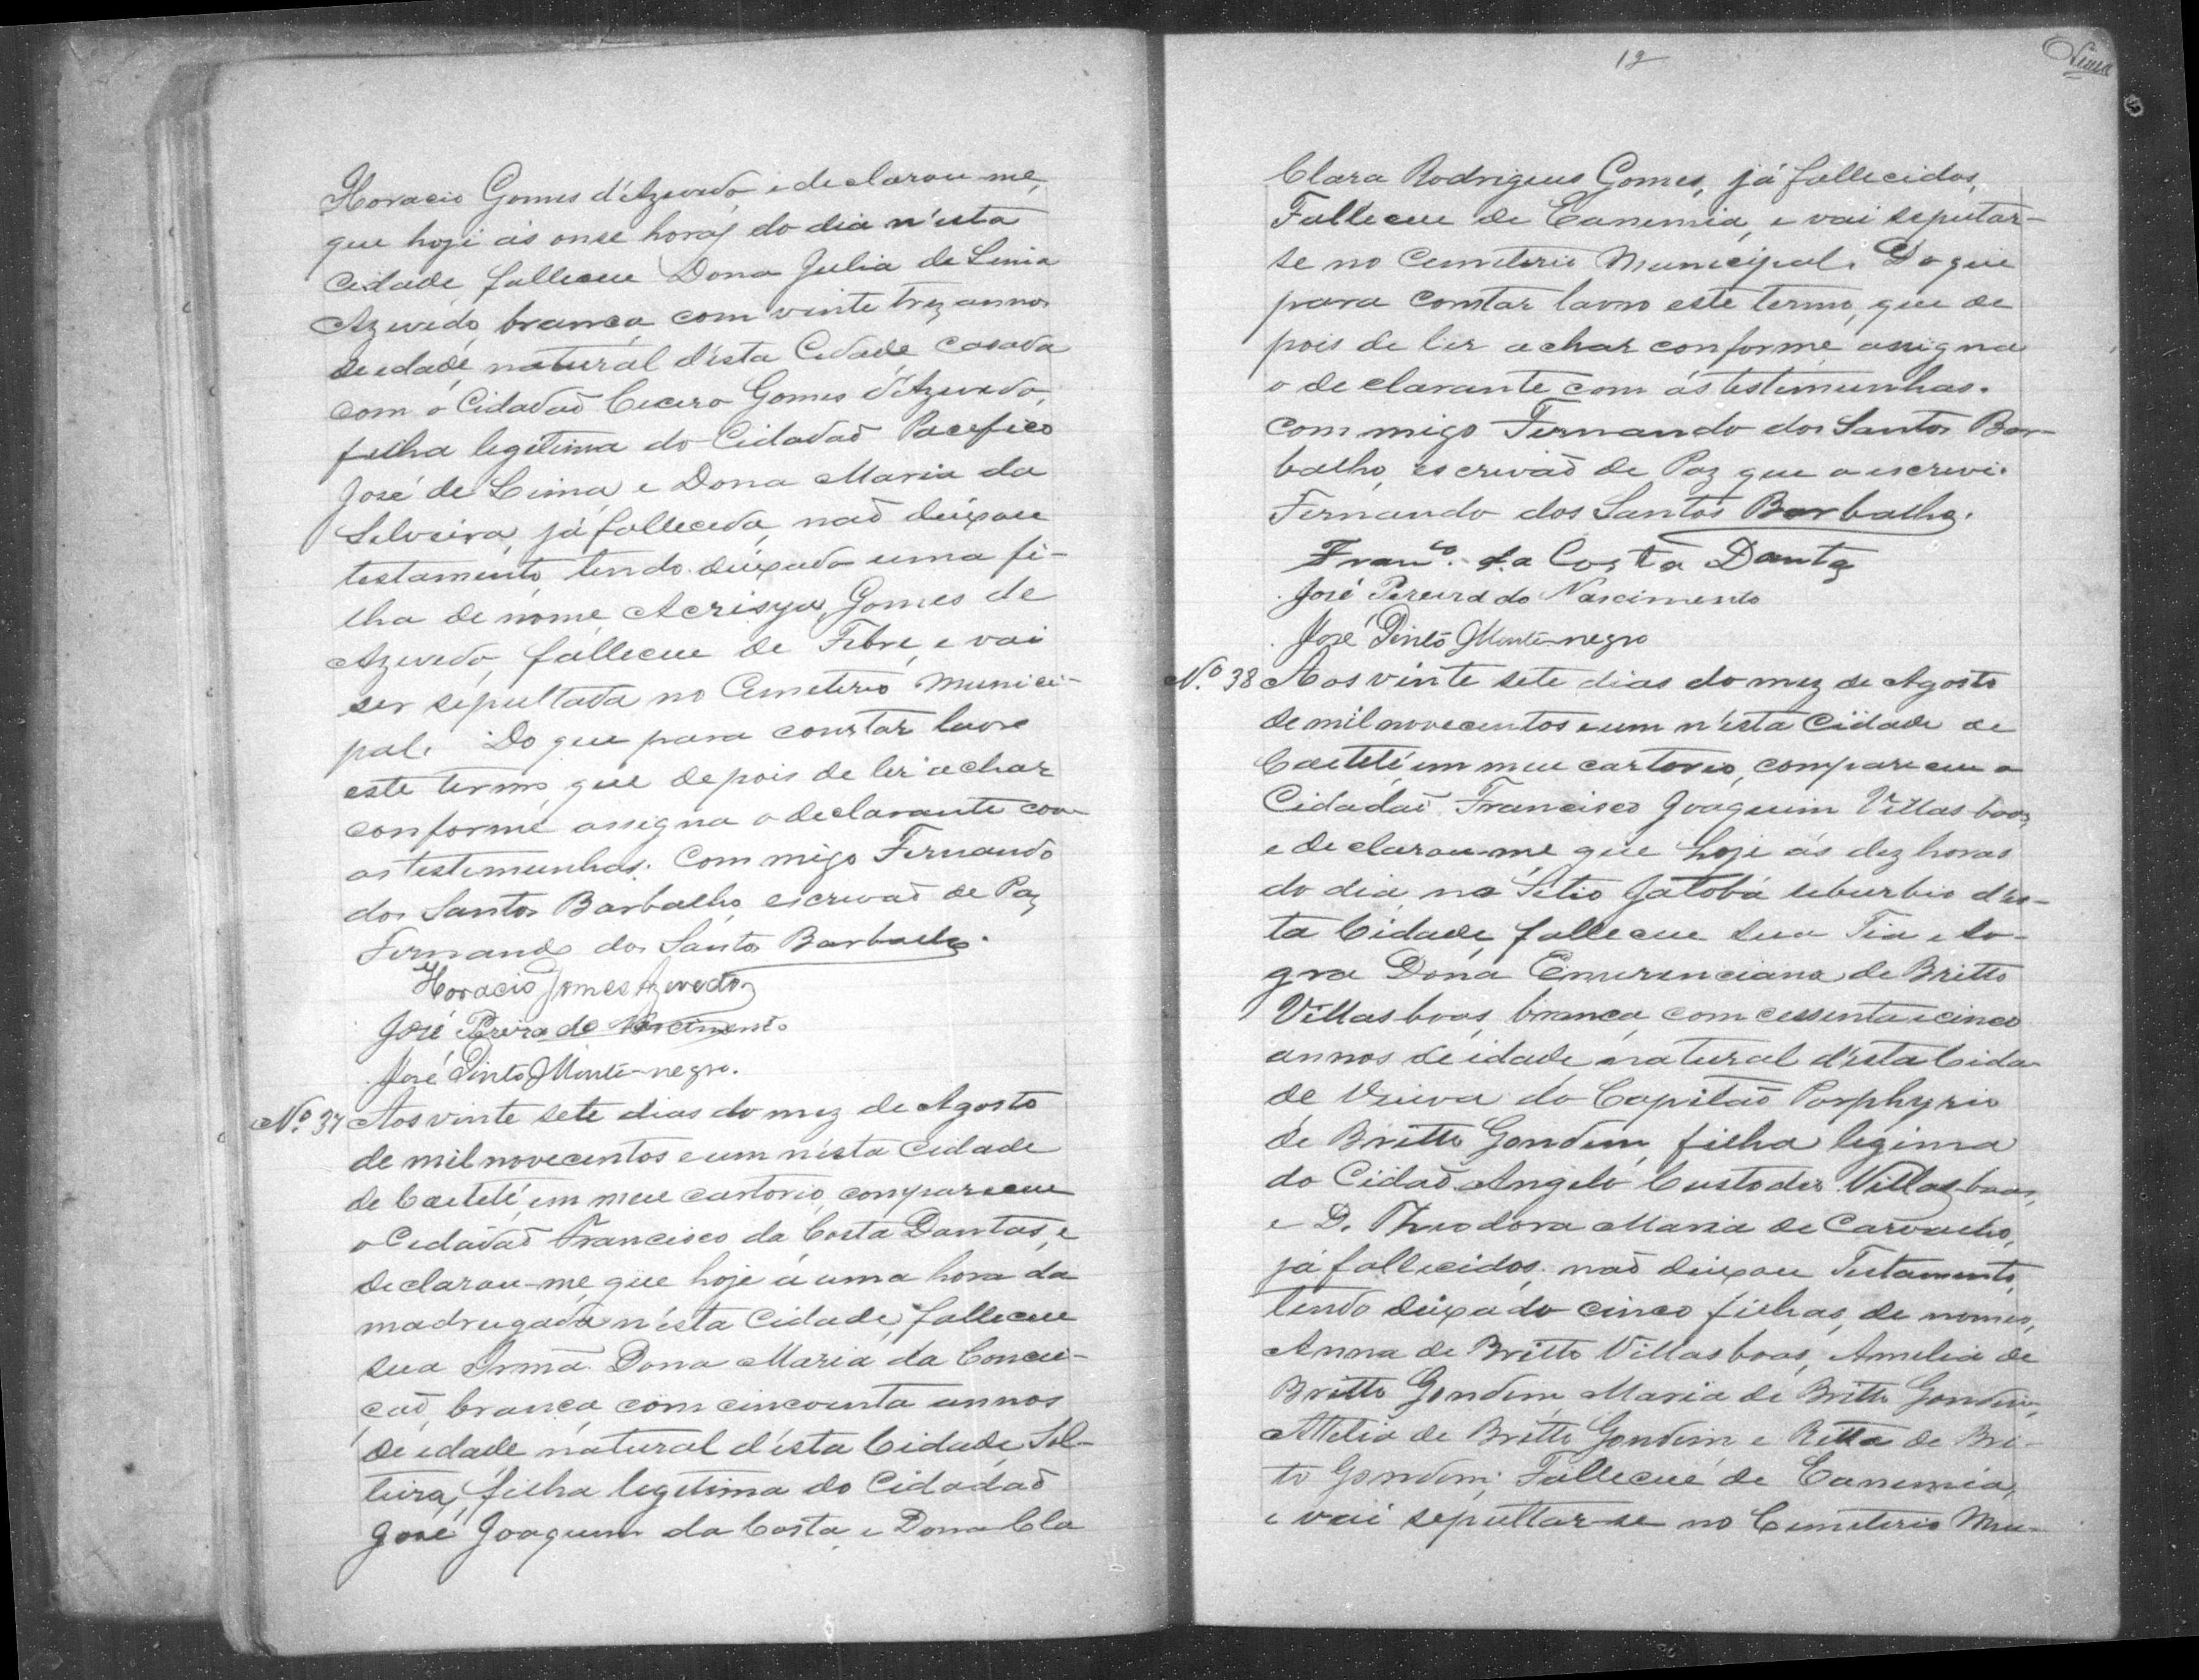 Horacio Gomes d'Azevedo e declarou-me,
que hoje ás onse horas do dia n'esta
Cidade falleceu Dona Julia de Lima
Azevedo, branca com vinte trez annos
de edade, natural d'esta Cidade, casada
com o Cidadaõ Cicero Gomes d'Azevedo,
filha legitima do Cidadaõ Pacifico
José de Lima, e Dona Maria da
Silveira, já fallecida, naõ deixou
testamento, tendo deixado uma fi-
lha de nome Acrisya, Gomes de
Azevedo, falleceu de Febre, e vai
ser sepultada no Cemeterio Munici-
pal. Do que para constar lavro
este termo, que depois de ler achar
conforme assigna o declarante com
as testemunhas. Com migo Fernando
dos Santos Barbalho, escrivaõ de Paz
Fernando dos Santos Barbalho.
Horacio Gomes Azevedo
José Pereira do Nascimento
José Pinto Monte-negro.
Nº 37 Aos vinte sete dias do mez de Agosto
de mil novecentos e um n'esta Cidade
de Caeteté, em meu cartorio, compareceu
o Cidadaõ Francisco da Costa Dantas, e
declarou-me, que hoje á uma hora da
madrugada n'esta Cidade, falleceu
sua Irmã Dona Maria da Concei-
çaõ, branca, com cincoenta annos
de edade, natural d'esta Cidade, Sol-
teira, filha legitima do Cidadaõ
José Joaquim da Costa e Dona Cla
12
Clara Rodrigues Gomes, já fallecidos,
Falleceu de Eanemia, e vai seputar-
se no Cemeterio Municipal. Do que
para constar lavro este termo, que de
pois de ler achar conforme, assigna
o declarante com ás testimunhas.
com migo Fernando dos Santos Bar-
balho, escrivaõ de Paz que a escrevi.
Fernando dos Santos Barbalho.
Franco. da Costa Dantas
José Pereira do Nascimento
José Pinto Monte-negro
Nº 38 Aos vinte sete dias do mez de Agosto
de mil novecentos e um n'esta Cidade de
Caeteté, em meu cartorio, compareceu o
Cidadaõ Francisco Joaquim Villasboas,
e declarou-me que hoje ás dez horas
do dia, no Sitio Jatobá suburbio d'es-
ta Cidade, falleceu sua Tia e So-
gra Dona Emerenciana de Britto
Villasboas, branca, com cessenta e cinco
annos de idade, natural d'esta Cida
de Viuva do Capitaõ Porphyrio
de Britto Gondim, filha legima
do Cidaõ Angelo Custodio Villasboas,
e D. Theodora Maria de Carvalho,
já fallecidos, naõ deixou Testamento,
tendo deixado cinco filhas, de nomes,
Anna de Britto Villasboas, Amelia de
Britto Gondim, Maria de Britto Gondim,
Attelia de Britto Gondim e Ritta de Bri-
to Gondim; Falleceu de Eanemia,
e vai sepultar-se no Cemeterio Mu-